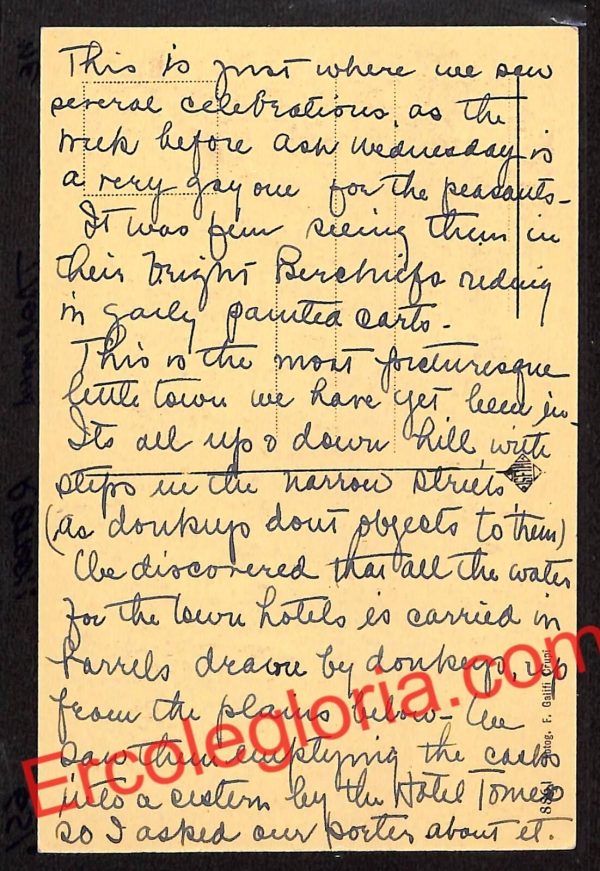 This is just where we saw
several celebrations, as the
week before Ash Wednesday is
a very gay one for the peasants-
It was fun seeing them in
their bright Kerchiefs riding
in gaily painted carts-
This is the most picturesque
little town we have yet been in-
Its all up & down hill with
steps in the narrow streets
(as donkeys dont objects to them)
We discovered that all the water
for the town hotels is carried in
barrels drawn by donkeys, up
from the plains below- We
saw them emptying the casks
into a cistern by the Hotel Timeo
so I asked our porter about it.
F. Galifi Crupi
Ercolegloria.com